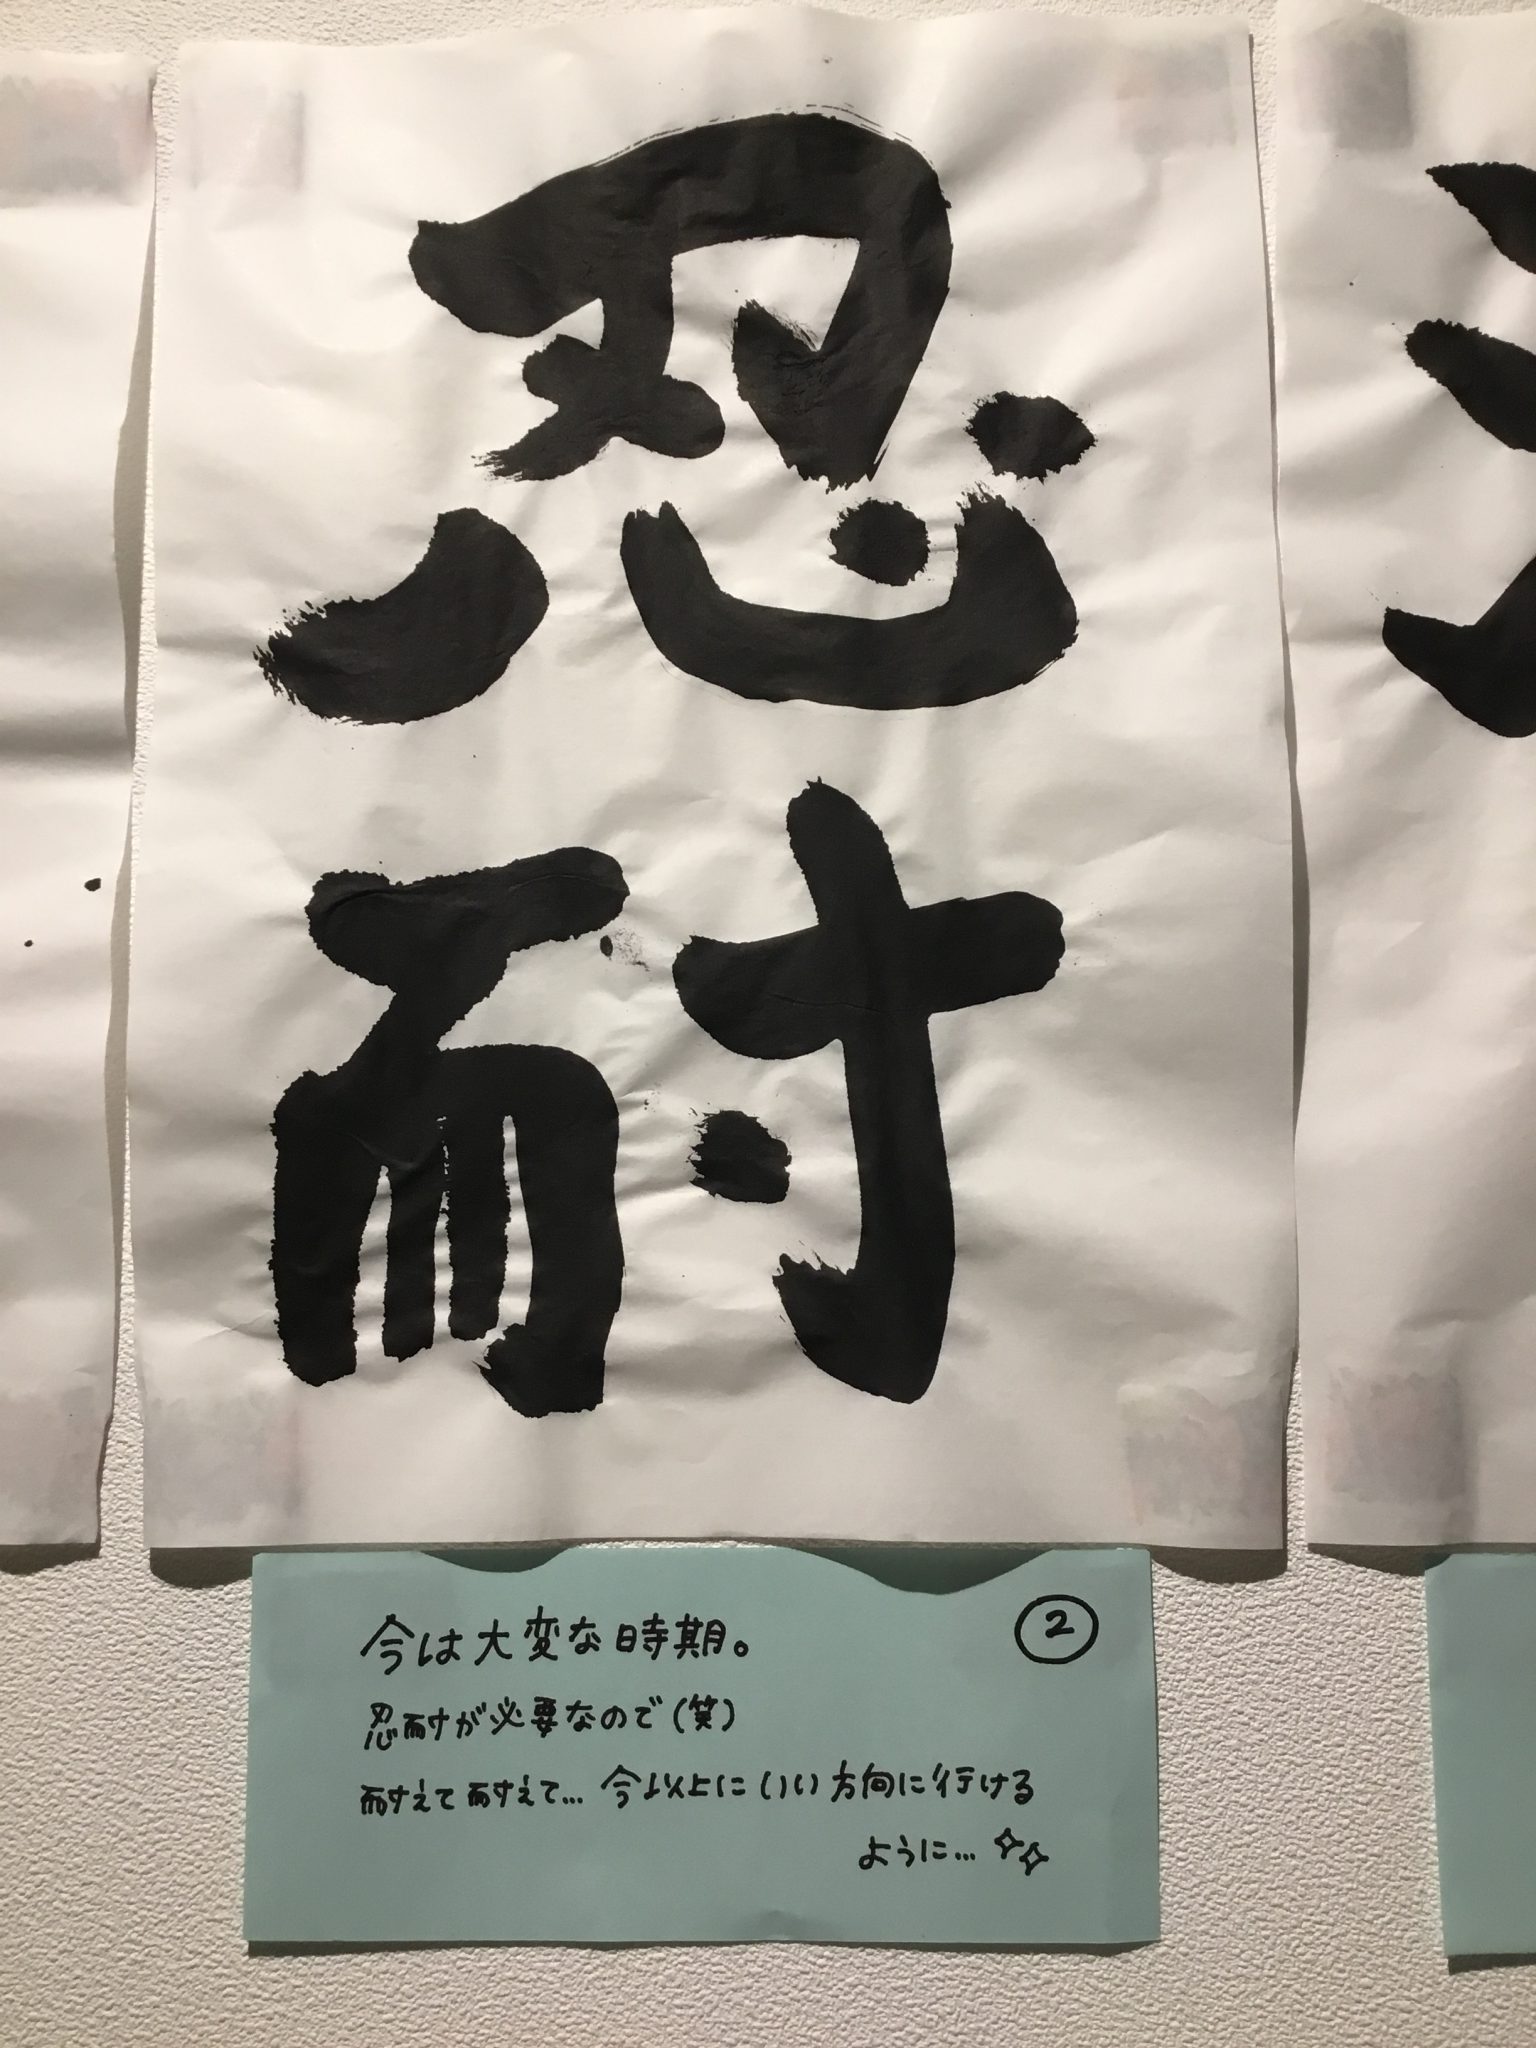 忍耐
今は大変な時期。
②
忍耐が必要なので(笑)
耐えて耐えて...今以上にいい方向に行ける
ように...